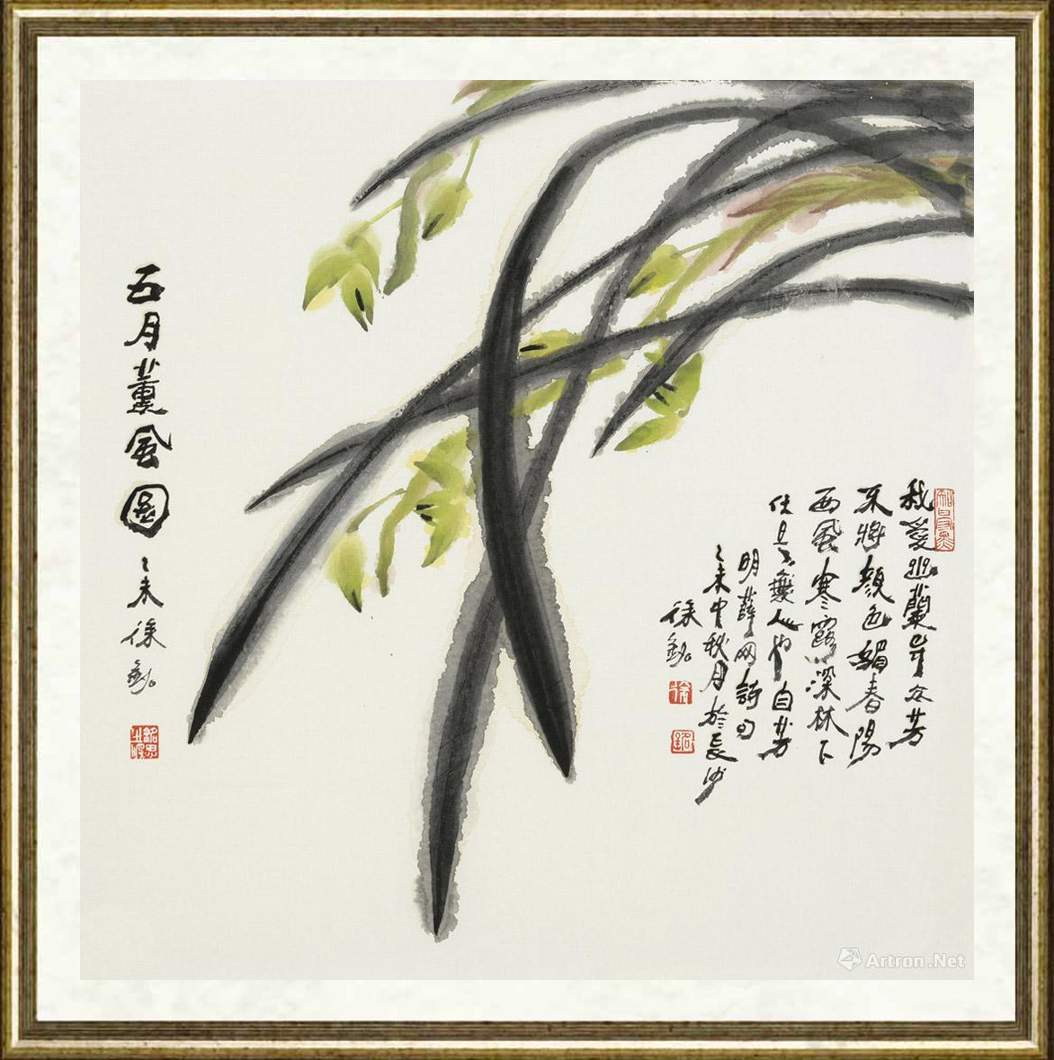 我愛幽蘭异众芳
不將顏色媚春陽
西風寒露深林下
任是無人也自芳
明薛网詩句
乙未中秋月於長沙
徐銘
徐
銘
五月薰風圖 乙未 徐銘
Artron.Net